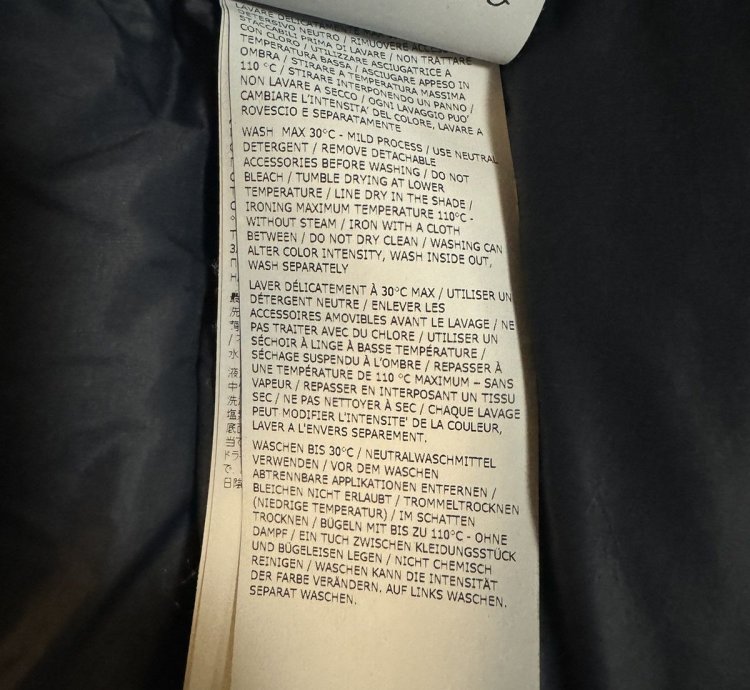 LAVARE DELICATAMENTE
DETERSIVO NEUTRO / RIMUOVERE
STACCABILI PRIMA DI LAVARE / NON TRATTARE
CON CLORO / UTILIZZARE ASCIUGATRICE A
TEMPERATURA BASSA / ASCIUGARE APPESO IN
OMBRA / STIRARE A TEMPERATURA MASSIMA
110 °C / STIRARE INTERPONENDO UN PANNO /
NON LAVARE A SECCO / OGNI LAVAGGIO PUO'
CAMBIARE L'INTENSITA' DEL COLORE, LAVARE A
ROVESCIO E SEPARATAMENTE
WASH MAX 30°C - MILD PROCESS / USE NEUTRAL
DETERGENT / REMOVE DETACHABLE
ACCESSORIES BEFORE WASHING / DO NOT
BLEACH / TUMBLE DRYING AT LOWER
TEMPERATURE / LINE DRY IN THE SHADE /
IRONING MAXIMUM TEMPERATURE 110°C -
WITHOUT STEAM / IRON WITH A CLOTH
BETWEEN / DO NOT DRY CLEAN / WASHING CAN
ALTER COLOR INTENSITY, WASH INSIDE OUT,
WASH SEPARATELY
LAVER DÉLICATEMENT À 30°C MAX / UTILISER UN
DÉTERGENT NEUTRE / ENLEVER LES
ACCESSOIRES AMOVIBLES AVANT LE LAVAGE / NE
PAS TRAITER AVEC DU CHLORE / UTILISER UN
SÉCHOIR À LINGE À BASSE TEMPÉRATURE /
SÉCHAGE SUSPENDU À L'OMBRE / REPASSER À
UNE TEMPÉRATURE DE 110 °C MAXIMUM – SANS
VAPEUR / REPASSER EN INTERPOSANT UN TISSU
SEC / NE PAS NETTOYER À SEC / CHAQUE LAVAGE
PEUT MODIFIER L'INTENSITE' DE LA COULEUR,
LAVER A L'ENVERS SEPAREMENT.
WASCHEN BIS 30°C / NEUTRALWASCHMITTEL
VERWENDEN / VOR DEM WASCHEN
ABTRENNBARE APPLIKATIONEN ENTFERNEN /
BLEICHEN NICHT ERLAUBT / TROMMELTROCKNEN
(NIEDRIGE TEMPERATUR) / IM SCHATTEN
TROCKNEN / BÜGELN MIT BIS ZU 110°C - OHNE
DAMPF / EIN TUCH ZWISCHEN KLEIDUNGSSTÜCK
UND BÜGELEISEN LEGEN / NICHT CHEMISCH
REINIGEN / WASCHEN KANN DIE INTENSITÄT
DER FARBE VERÄNDERN. AUF LINKS WASCHEN.
SEPARAT WASCHEN.